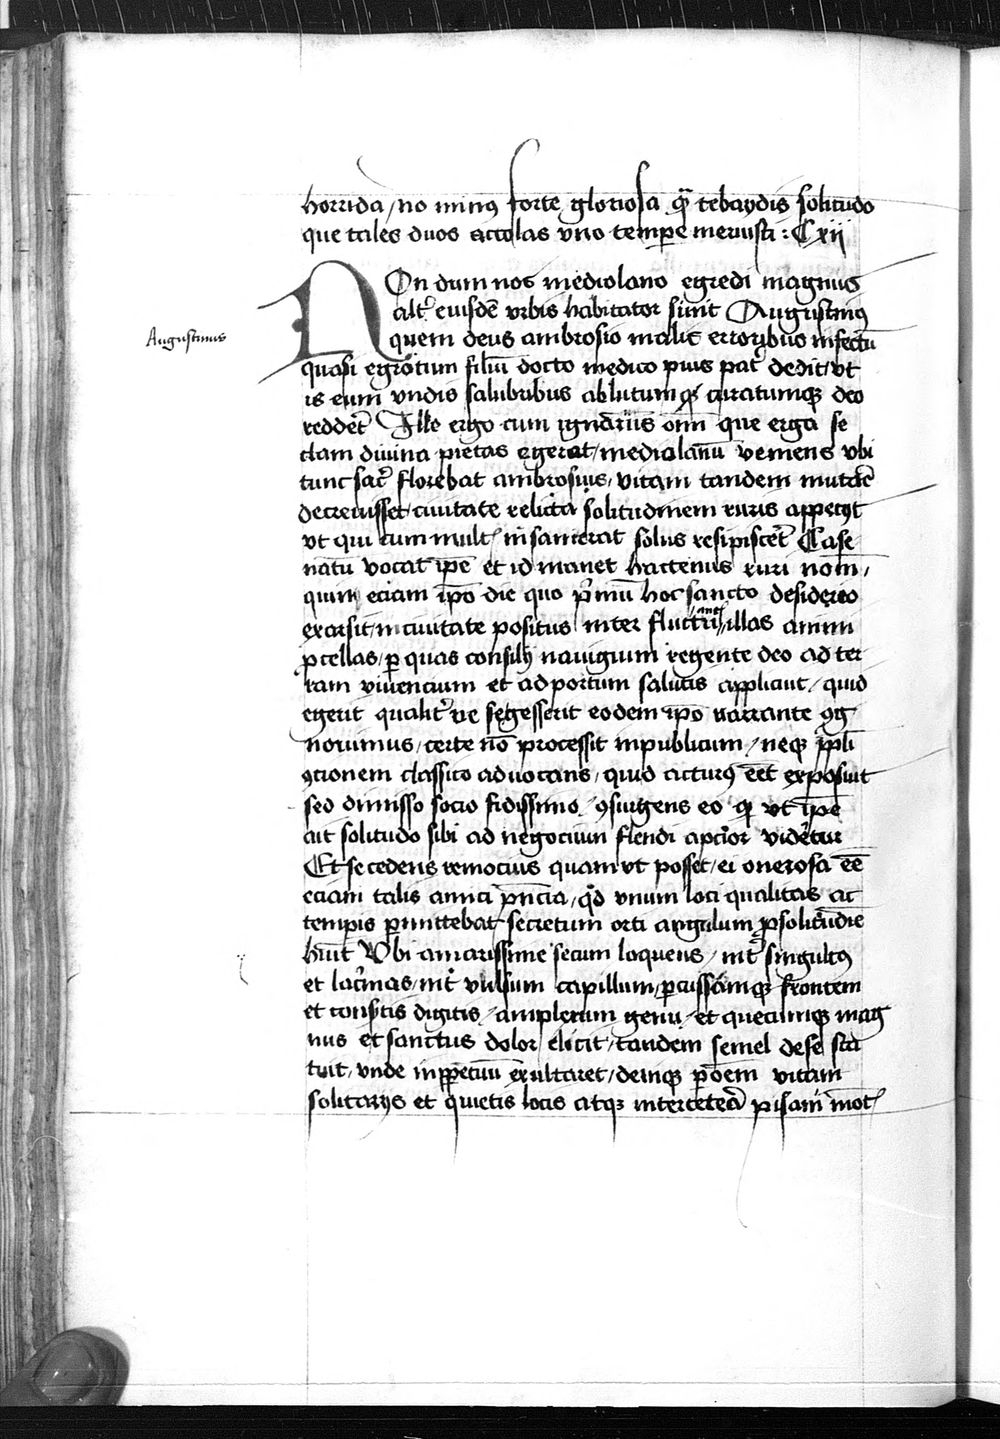 horrida / no minꝰ forte gloriosa ꝙ̄ tebaydis solitudo
que tales duos accolas vno temꝑe meruisti : C xij
NOn dum nos mediolano egredi magnus
alt͛ eiusdē vrbis habitator sinit Augustinꝰ
Augustinus
quem deus ambrosio malis erroribus infectū
quasi egrotum filiū docto medico pius pat͛ dedit / vt
is eum vndis salubribus ablutumqꝫ curatumqꝫ deo
reddēt Ille ergo cum ignariis om̄ que erga se
clam diuina pietas egerat / mediolanū veniens vbi
tunc sac͛ florebat ambrosius / vitam tandem mutare
decreuisset / ciuitate relicta solitudinem ruris appecijt
vt qui cum mult͛ insanierat solus resipiscēt Casse
natū vocat ip̄e et id manet hactenus ruri nom̄ /
quin eciam ip̄o die quo p͛mū hoc sancto desiderio
exarsit / in ciuitate positus inter fluctuātes illas animi
ꝓcellas / ꝑ quas consilij nauigium regente deo ad ter
ram viuencium et ad portum salutis applicuit / quid
egerit qualit͛ ve se gesserit eodem ip̄o narrante ꝯg
nouimus / certe nō processit in publicum / neqꝫ pp̄li
ꝯcionem classico aduocans / quid acturꝰ eēt exposuit
sed dimisso socio fidissimo / ꝯsurgens eo ꝙ vt ip̄e
ait solitudo sibi ad negocium flendi apcior videtur
Et secedens remocius quam vt posset / ei onerosa eē
eciam talis amici pn̄cia / qd̄ vnum loci qualitas ac
tempis ꝑmittebat secretum orti angulum ꝓ solitudīe
hūit Vbi amarissime secum loquens / int͛ singultꝰ
et lac͛mas / int͛ vulsum capillum / ꝑcussamqꝫ frontem
et consertis digitis / amplexum genu / et quecumqꝫ mag
nus et sanctus dolor elicit / tandem semel de se sta
tuit / vnde in ꝑpetuū exultaret / deinqꝫ ꝑ om̄em vitam
solitarijs et quietis locis atqꝫ inter cetera pisani mōt͛